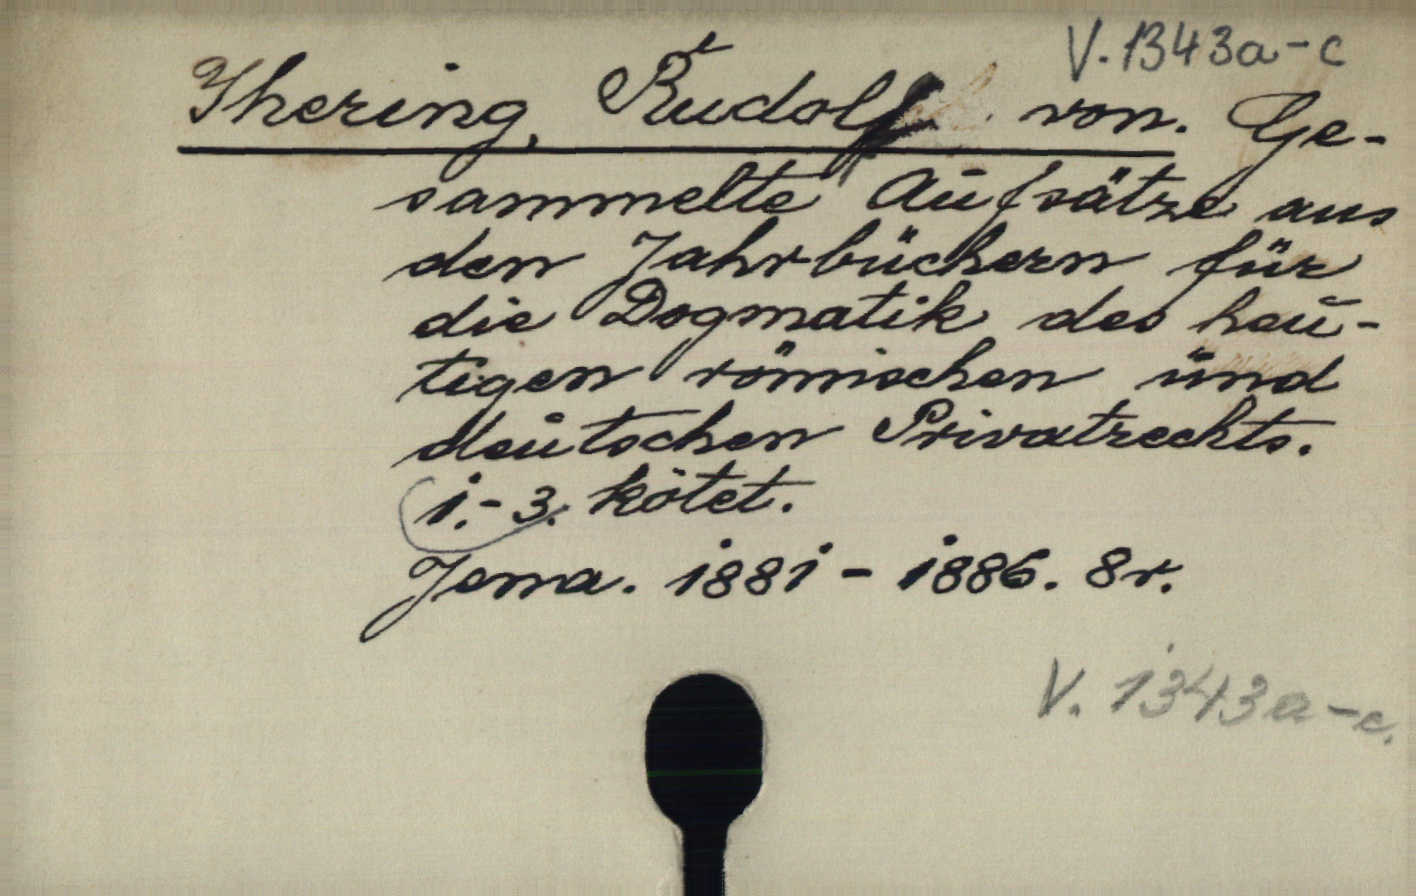 V. 1343a-c
Ihering, Rudolf von. Ge-
sammelte Aufsätze aus
den Jahrbüchern für
die Dogmatik des heu-
tigen römischen und
deutschen Privatrechts.
1.-3. kötet.
Jena. 1881-1886. 8r.
V. 1343a-c.